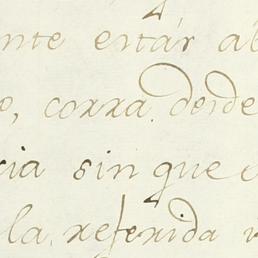 nte estár ab
o, corra desde
cia sin que
la referida